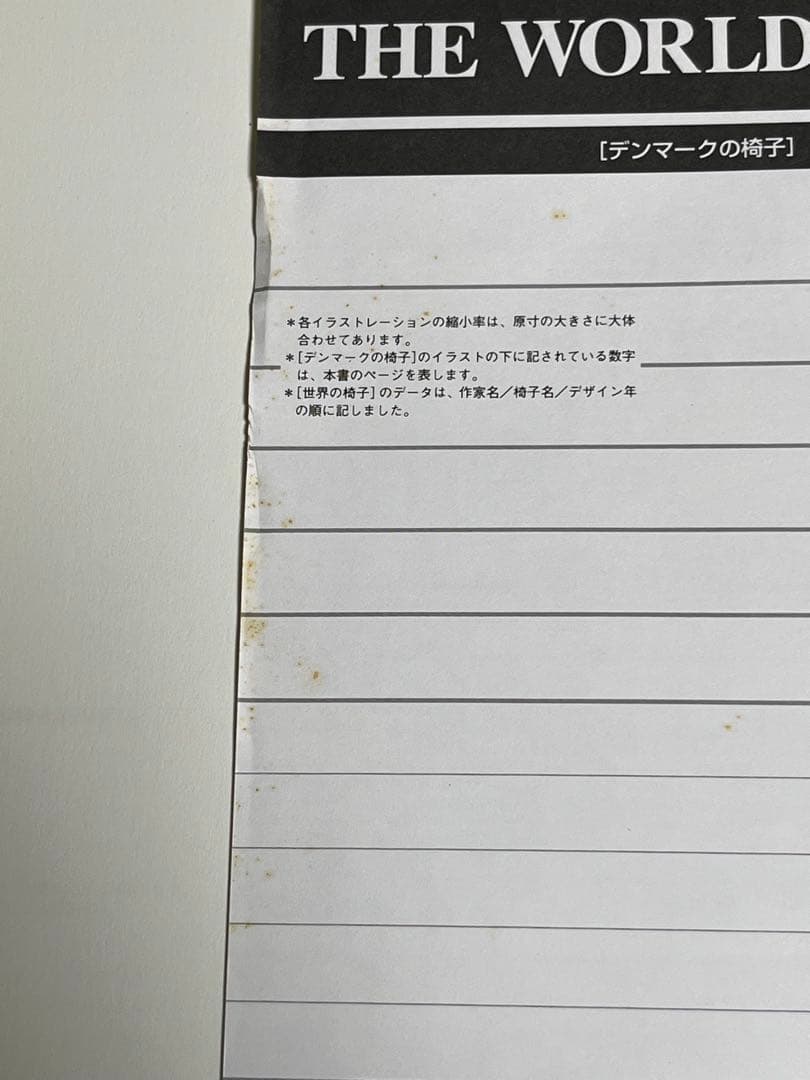 THE WORLD
[デンマークの椅子]
＊各イラストレーションの縮小率は、原寸の大きさに大体
合わせてあります。
＊[デンマークの椅子]のイラストの下に記されている数字
は、本書のページを表します。
＊[世界の椅子]のデータは、作家名／椅子名／デザイン年
の順に記しました。